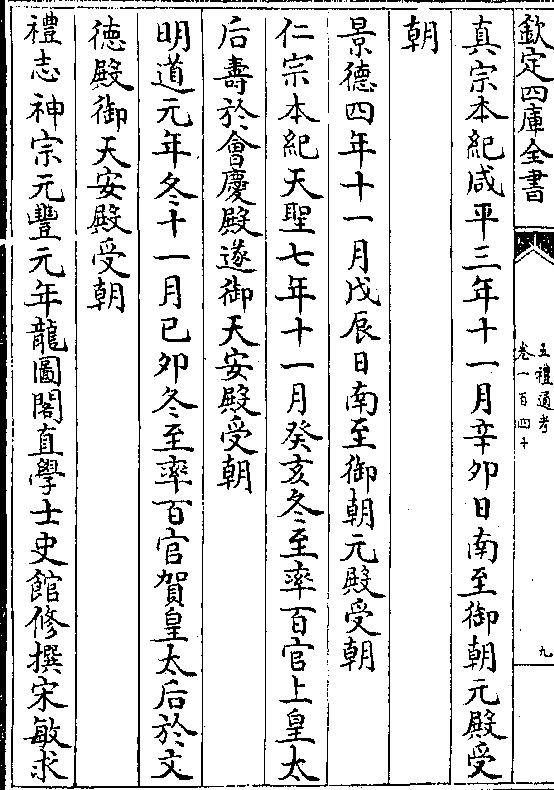 欽定四庫全書
五禮通考
卷一百四十
九
真宗本紀咸平三年十一月辛卯日南至御朝元殿受
朝
景德四年十一月戊辰日南至御朝元殿受朝
仁宗本紀天聖七年十一月癸亥冬至率百官上皇太
后壽於會慶殿遂御天安殿受朝
明道元年冬十一月己卯冬至率百官賀皇太后於文
德殿御天安殿受朝
禮志神宗元豐元年龍圖閣直學士史館修撰宋敏求